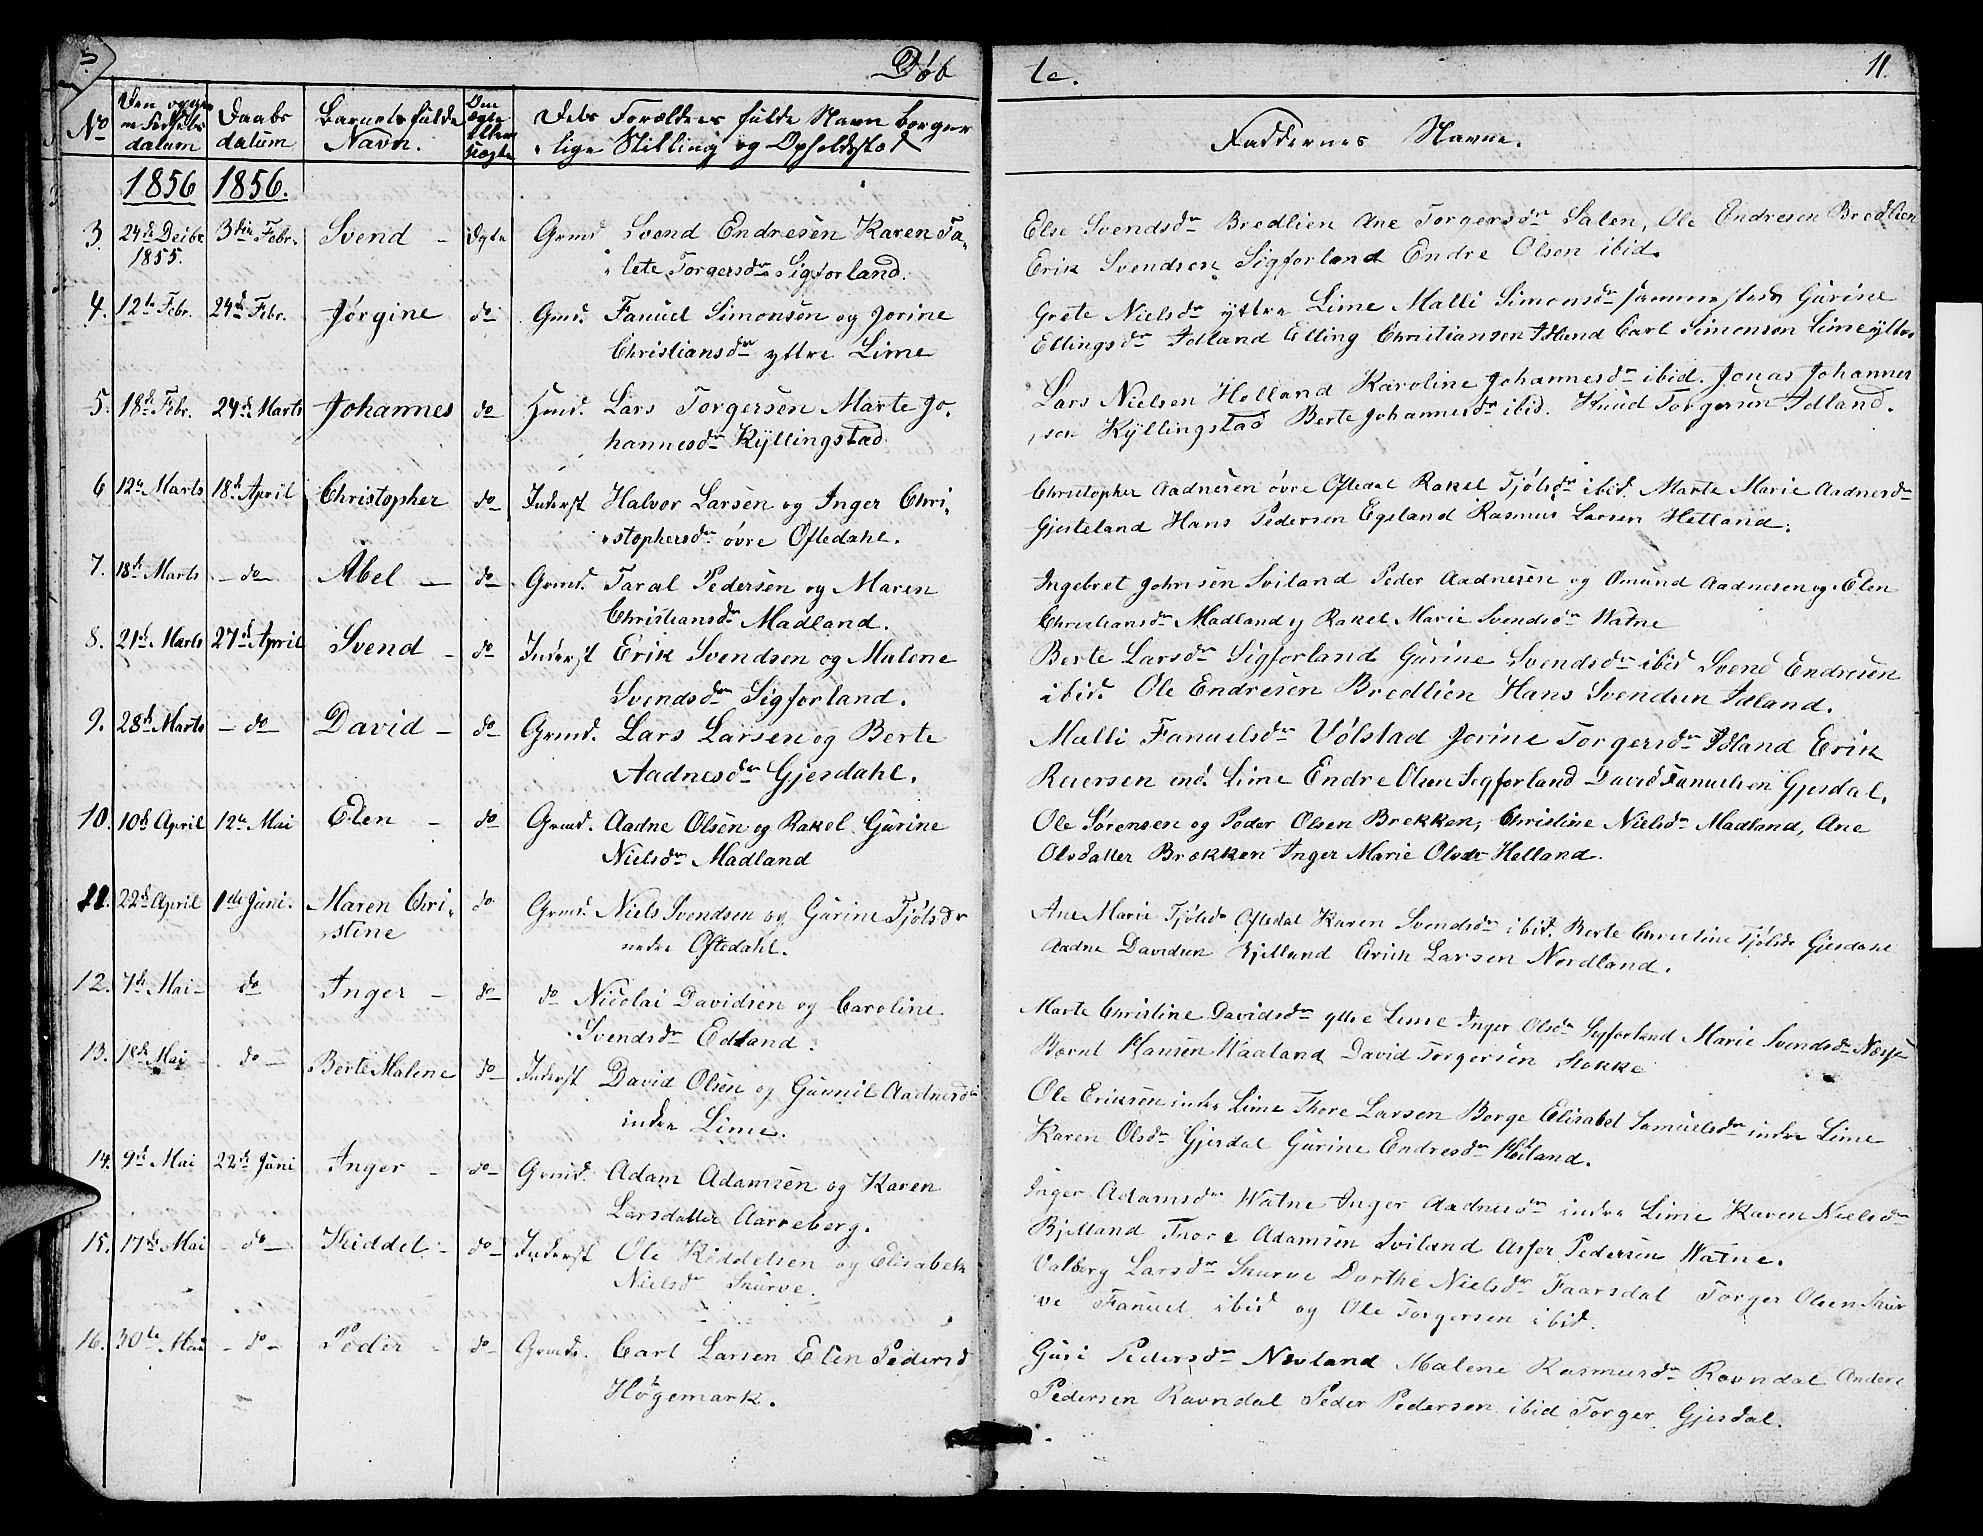 Døb
te.
11.
No
Den og den
Fødsels
datum
Daabs
datum
Barnets fulde
Navn.
Om
Ægte
eller
uægte
Dets Forældres fulde Navn borger
lige Stilling og Opholdssted
Faddernes Navne.
1856 1856.
3. 24de Decbr 3die Febr. Svend - Ægte Grmd Svend Endresen Karen Ta-
1855. lete Torgersdr Sigforland.
Else Svendsdr Bredlien Ane Torgersdr Salen, Ole Endresen Bredlien
Erik Svendsen Sigforland Endre Olsen ibid.
4. 12te Febr. 24de Febr. Jørgine do Gmd. Fanuel Simonsen og Jorine
Christiansdr yttre Lime
Grete Nielsdr yttre Lime Malli Simonsdr sammesteds Gurine
Ellingsdr Idland Elling Christiansen Idland Carl Simonsen Lime yttre
5. 18de Febr. 24de Marts Johannes do Hmd. Lars Torgersen Marte Jo-
hannesdr Kyllingstad
Lars Nielsen Helland Karoline Johannesdr ibid. Jonas Johannes
sen Kyllingstad Berte Johannesdr ibid. Knud Torgersen Idland.
6 12te Marts 18de April Christopher do Inderst Halvor Larsen og Inger Chri-
stophersdr øvre Oftedahl.
Christopher Aadnesen øvre Oftedal Rakel Tjølsdr ibid. Marte Marie Aadnesdr
Gjesteland Hans Pedersen Egeland Rasmus Larsen Hetland.
7. 18de Marts - do - Abel - do Grmd. Taral Pedersen og Maren
Christiansdr Madland.
Ingebret Johnsen Sviland Peder Aadnesen og Omund Aadnesen og Elen
Christiansdr Madland og Rakel Marie Svendsdr Watne
8. 21de Marts 27de April Svend - do Inderst Erik Svendsen og Malene
Svendsdr Sigforland.
Berte Larsdr Sigforland Gurine Svendsdr ibid Svend Endresen
ibid. Ole Endresen Bredlien Hans Svendsen Idland.
9. 28de Marts - do - David - do Grmd. Lars Larsen og Berte
Aadnesdr Gjesdahl.
Malli Fanuelsdr Vølstad Jorine Torgersdr Idland Erik
Reiersen ind. Lime Endre Olsen Sigforland David Fanuelsen Gjesdal.
10. 10de April 12te Mai Elen - do Grmd. Aadne Olsen og Rakel Gurine
Nielsdr Madland
Ole Sørensen og Peder Olsen Brekken, Christine Nielsdr Madland, Ane
Olsdatter Brækken Inger Marie Olsdr Helland.
11. 22de April 1ste Juni. Maren Chri- do Grmd. Niels Svendsen og Gurine Tjølsdr
stine nedre Oftedahl.
Ane Marie Tjølsdr Oftedal Karen Svendsdr ibid. Berte Christine Tjølsdr Gjesdahl
Aadne Davidsen Bjelland Erik Larsen Nordland.
12. 7de Mai - do Inger - do do Nicolai Davidsen og Caroline
Svendsdr Edland.
Marte Christine Davidsdr yttre Lime Inger Olsdr Sigforland Marie Svendsdr Næse
Bernt Hansen Waaland David Torgersen Stokke
13. 18de Mai - do - Berte Malene do Inderst David Olsen og Gunnil Aadnesdr
indre Lime.
Ole Eriksen indre Lime Thore Larsen Borge Elisabet Samuelsdr indre Lime
Karen Olsdr Gjesdal Gurine Endresdr Høiland.
14. 9de Mai 22de Juni Inger - do Grmd. Adam Adamsen og Karen
Larsdatter Aarreberg.
Inger Adamsdr Watne Inger Aadnesdr indre Lime Karen Nielsdr
Bjelland Thore Adamsen Sviland Asser Pedersen Watne.
15. 17de Mai - do - Kiddel - do Inderst Ole Kiddelsen og Elisabeth
Nielsdr Skurve.
Valborg Larsdr Skurve Dorthe Nielsdr Faarsdal Torger Olsen Skur
ve Fanuel ibid og Ole Torgersen ibid.
16. 30te Mai - do - Peder - do Grmd. Carl Larsen Elen Pedersd
Høgemark.
Guri Pedersdr Nevland Malene Rasmusdr Ravndal Anders
Pedersen Ravndal Peder Pedersen ibid Torger Gjesdal.